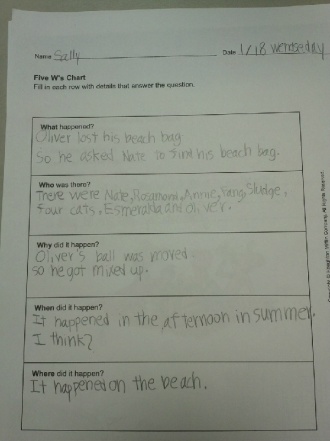 Name Sally Date 1/18 wendsedny
Five W's Chart
Fill in each row with details that answer the question.
What happened?
Oliver lost his beach bag.
So he asked Nate to find his beach bag.
Who was there?
There were Nate, Rosmond, Annie, Fang, Sludge,
four cats, Esmeralda and Oliver.
Why did it happen?
Oliver's ball was moved.
so he got mixed up.
When did it happen?
It happened in the afternoon in summer.
I think?
Where did it happen?
It happened on the beach.